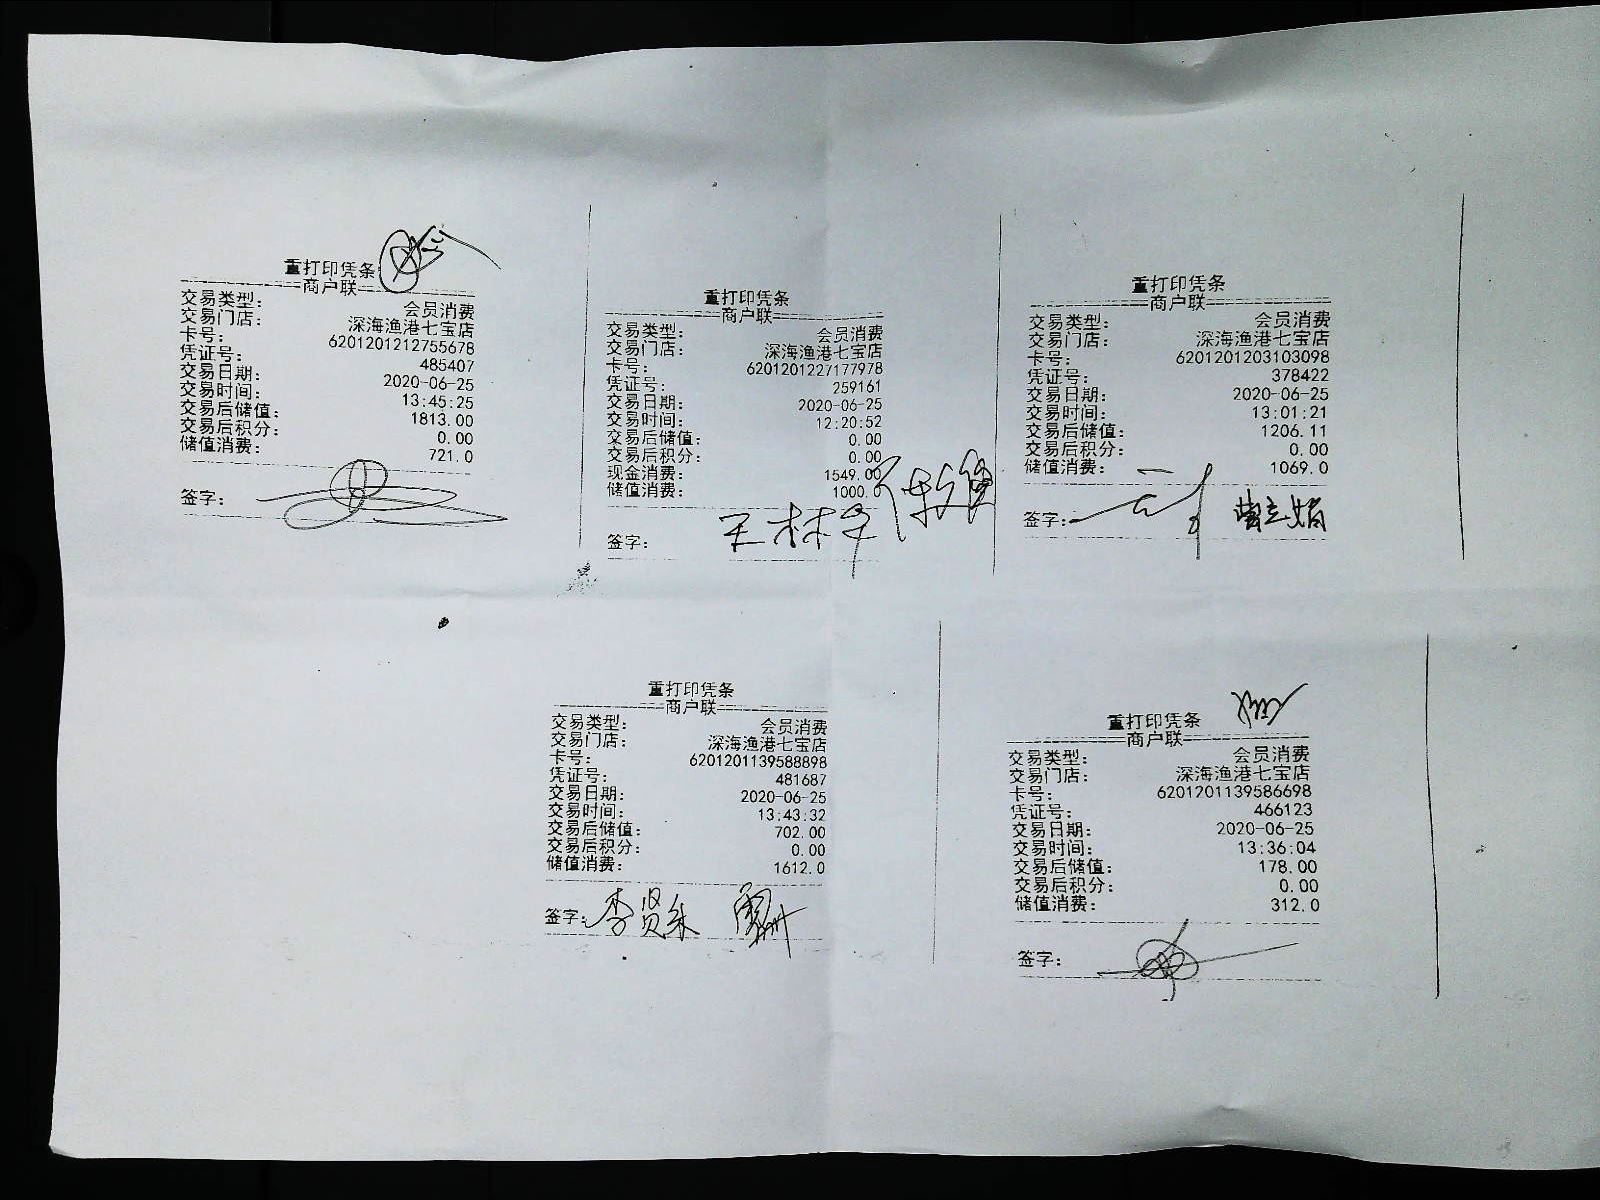 重打印凭条
商户联
交易类型： 会员消费
交易门店： 深海渔港七宝店
卡号： 6201201212755678
凭证号： 485407
交易日期： 2020-06-25
交易时间： 13:45:25
交易后储值： 1813.00
交易后积分： 0.00
储值消费： 721.0
签字：
重打印凭条
商户联
交易类型： 会员消费
交易门店： 深海渔港七宝店
卡号： 6201201227177978
凭证号： 259161
交易日期： 2020-06-25
交易时间： 12:20:52
交易后储值： 0.00
交易后积分： 0.00
现金消费： 1549.00
储值消费： 1000.0
签字：
重打印凭条
商户联
交易类型： 会员消费
交易门店： 深海渔港七宝店
卡号： 6201201203103098
凭证号： 378422
交易日期： 2020-06-25
交易时间： 13:01:21
交易后储值： 1206.11
交易后积分： 0.00
储值消费： 1069.0
签字：
重打印凭条
商户联
交易类型： 会员消费
交易门店： 深海渔港七宝店
卡号： 6201201139588898
凭证号： 481687
交易日期： 2020-06-25
交易时间： 13:43:32
交易后储值： 702.00
交易后积分： 0.00
储值消费： 1612.0
签字：
重打印凭条
商户联
交易类型： 会员消费
交易门店： 深海渔港七宝店
卡号： 6201201139586698
凭证号： 466123
交易日期： 2020-06-25
交易时间： 13:36:04
交易后储值： 178.00
交易后积分： 0.00
储值消费： 312.0
签字：